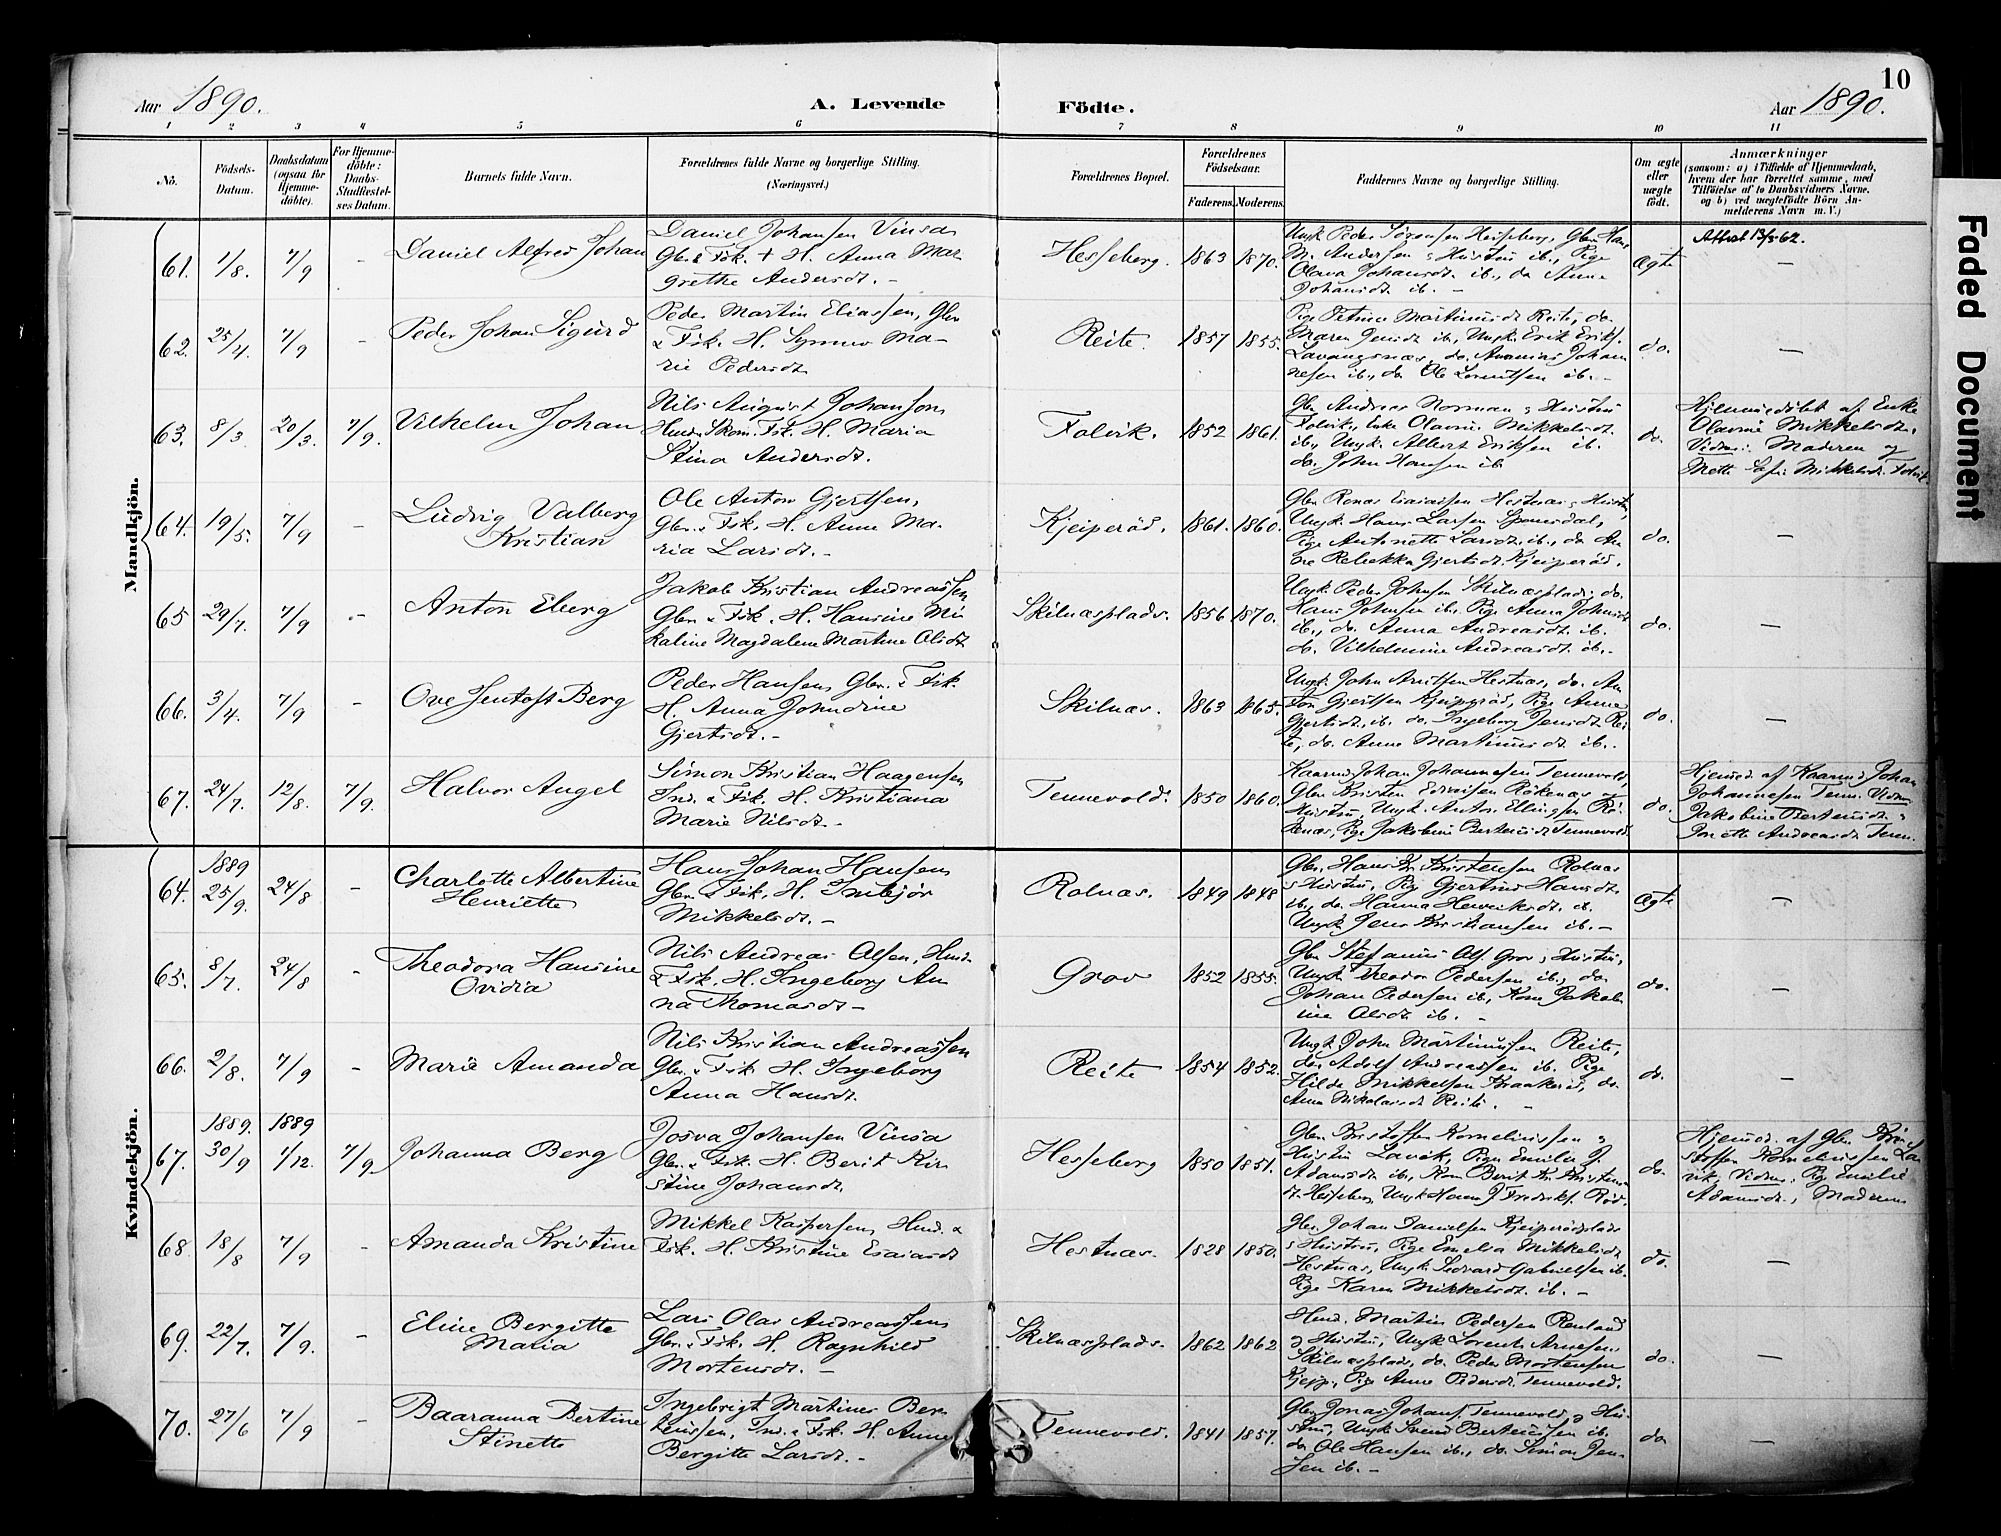 10
Aar 1890.
A. Levende Födte.
Aar 1890.
1 2 3 4 5 6 7 8 9 10 11
No.
Födsels-Datum.
Daabsdatum (ogsaa for Hjemme-döbte).
For Hjemme-döbte: Daabs-Stadfæstel-ses Datum.
Barnets fulde Navn.
Forældrenes fulde Navne og borgerlige Stilling.
(Næringsvei.)
Forældrenes Bopæl.
Forældrenes Födselsaar.
Faderens. Moderens.
Faddernes Navne og borgerlige Stilling.
Om ægte eller uægte født.
Anmærkninger
(saasom: a) i Tilfælde af Hjemmedaab,
hvem der har forrettet samme, med
Tilföielse af to Daabsvidners Navne.
og b) ved uægtefödte Börn An-
melderens Navn m. V.)
Faded Document
Mandkjön.
61. 1/8. 7/9 - Daniel Alfred Johan
Daniel Johansen Vinsa
Gbr. & Fsk. + H. Anna Mar
grethe Andersdt. -
Hesseberg. 1863 1870.
Ungk. Peder Sørensen Hesseberg, Gbr. Hans
M. Andersen & Hustru ib., Pige
Olava Johansdt. ib., do Anne
Johansdt. ib. -
Ægte
Attest 13/3-62.
-
62. 25/4. 7/9 - Peder Johan Sigurd
Peder Martin Eliassen, Gbr
& Fsk. H. Synnev Ma-
rie Pedersdt.
Reite. 1857 1855.
Pige Petrine Martinusdt. Reite, do.
Maren Jensdt. ib., Ungk. Erik Eriks.
Lavangsnæs, do. Ananias Johan
nesen ib., do Ole Lorentsen ib. -
do. -
63. 8/3. 20/3. 7/9. Vilhelm Johan
Nils August Johanson
Hmd. Skom. Fsk. H. Maria
Stina Andersdt.
Folvik. 1852 1861.
Gbr. Andreas Norman & Hustru
Folvik, Enke Olavine Mikkelsdt.
ib., Ungk. Albert Eriksen ib.
do. John Hansen ib.
do.
Hjemmedøbt af Enke
Olavine Mikkelsdt.
Vidner: Moderen og
Mette Sofie Mikkelsdt. Folvik
64. 19/5. 7/9 - Ludvig Valberg
Kristian
Ole Anton Gjertsen,
Gbr. & Fsk. H. Anne Ma-
ria Larsdt. -
Kjeiperöd. 1861. 1860.
Gbr. Renas Esaiassen Hestnæs & Hustru,
Ungk. Hans Larsen Spansdal,
Pige Antonette Larsdt. ib., do An-
ne Rebekka Gjertsdt. Kjeiperöd.
do. -
65 29/7. 7/9 - Anton Eberg
Jakob Kristian Andreassen
Gbr. & Fsk. H. Hansine Mi
kaline Magdalene Martine Olsdt
Skilnæsplads. 1856 1870.
Ungk. Peder Johnsen Skilnæsplads, do.
Hans Johnsen ib. Pige Anna Johnsdt
ib., do. Anna Andreasdt. ib.
do. Vilhelmine Andreasdt. ib. -
do. -
66. 3/4. 7/9 - Ove Jentoft Berg
Peder Hansen, Gbr. & Fsk.
H. Anna Johndine
Gjertsdt. -
Skilnæs. 1863 1865.
Ungk. John Arntsen Hestnæs, do. An-
ton Gjertsen Kjeipröd, Pige Anne
Gjertsdt. ib. do. Ingeborg Jensdt. Rei-
te, do. Anne Martinusdt. ib. -
do. -
67. 24/7. 12/8. 7/9. Halvor Angel
Simon Kristian Haagensen
Ind. & Fsk. H. Kristiana
Marie Nilsdt. -
Tennevold. 1850 1860.
Kaarmd. Johan Johannesen Tennevold,
Gbr. Kristen Edvardsen Røkenæs &
Hustru, Ungk. Anton Ellingsen Rö-
kenæs, Pige Jakobine Berteusdt. Tennevold.
do.
Hjemd. af Kaarmd. Johan
Johannesen Tenn. Vidner
Jakobine Berteusdt. &
Anette Andreasdt. Tenn.
Kvindekjön.
64. 1889 25/9. 24/8 - Charlotte Albertine
Henriette
Hans Johan Hansen
Gbr. & Fsk. H. Inbejör
Mikkelsdt. -
Rolnæs. 1849 1848
Gbr. Hans Kr. Kristensen Rolnæs
& Hustru, Pige Gjertrud Hansdt.
ib., do. Hanna Henriksdt. ib.
Ungk. Jens Kristiansen ib. -
Ægte -
65. 8/7. 24/8 - Theodora Hansine
Ovidia
Nils Andreas Olsen, Hmd.
& Fsk. H. Ingeborg An
na Thomasdt. -
Grov 1852 1855.
Gbr. Stefanus Ols. Grov & Hustru,
Ungk. Theodor Pedersen ib., do.
Johan Pedersen ib., Kone Jakob
ine Olsdt. ib. -
do. -
66. 2/8. 7/9 - Marie Amanda
Nils Kristian Andreassen
Gbr. & Fsk. H. Ingeborg
Anna Hansdt.
Reite 1854 1852.
Ungk. John Martinussen Reite,
do. Adolf Andreassen ib. Pige
Hilda Mikkelsen Kraakeröd, do.
Anna Nikolaisdt. Reite. -
do. -
67. 1889. 30/9 1889 1/12. 7/9 Johanna Berg
Josva Johansen Vinsa
Gbr. & Fsk. H. Berit Kir
stine Johansdt.
Hesseberg 1850 1851.
Gbr. Kristoffer Kornelinssen &
Hustru Lavik, Pige Emilie J.
Adamsdt. ib., Kone Berit Kr. Kristens
dt. Hesseberg, Ungk. Haren J. Fredriks.
do.
Hjemd. af Gbr. Kri-
stoffer Kornelinssen La-
vik, Vidner, Pg. Emilie
Adamsdt., Moderen
68. 18/8 7/9 - Amanda Kristine
Mikkel Kaspersen, Hmd. &
Fsk. H. Kristine Esaiasdt
Hestnæs. 1828 1850.
Gbr. Johan Danielsen Kjeiperödplads
& Hustru, Pige Emelia Mikkelsdt.
Hestnæs, Ungk. Sedvard Gabrielsen ib.
Pige Karen Mikkelsdt. ib. -
do. -
69. 22/7. 7/9. - Eline Bergitte
Malia
Lars Olai Andreassen
Gbr. & Fsk. H. Ragnhild
Mortensdt. -
Skilnæsplads. 1862 1862
Hmd. Martin Pedersen Renland
& Hustru, Ungk. Lorents Arnesen
Skilnæsplads, do. Peder Mortensen
Kjeip., Pige Anne Pedersdt. Tennevold.
do. -
70. 27/6 7/9 - Baaranna Bertine
Stinette
Ingebrigt Martines Ber-
teussen, Ind. & Fsk. H. Anne
Bergitte Larsdt. -
Tennevold. 1841 1857.
Gbr. Jonas Johans. Tennevold & Hu-
stru, Ungk. Svend Berteussen ib.
do Ole Hansen ib., do. Simon Jen-
sen ib. -
do -